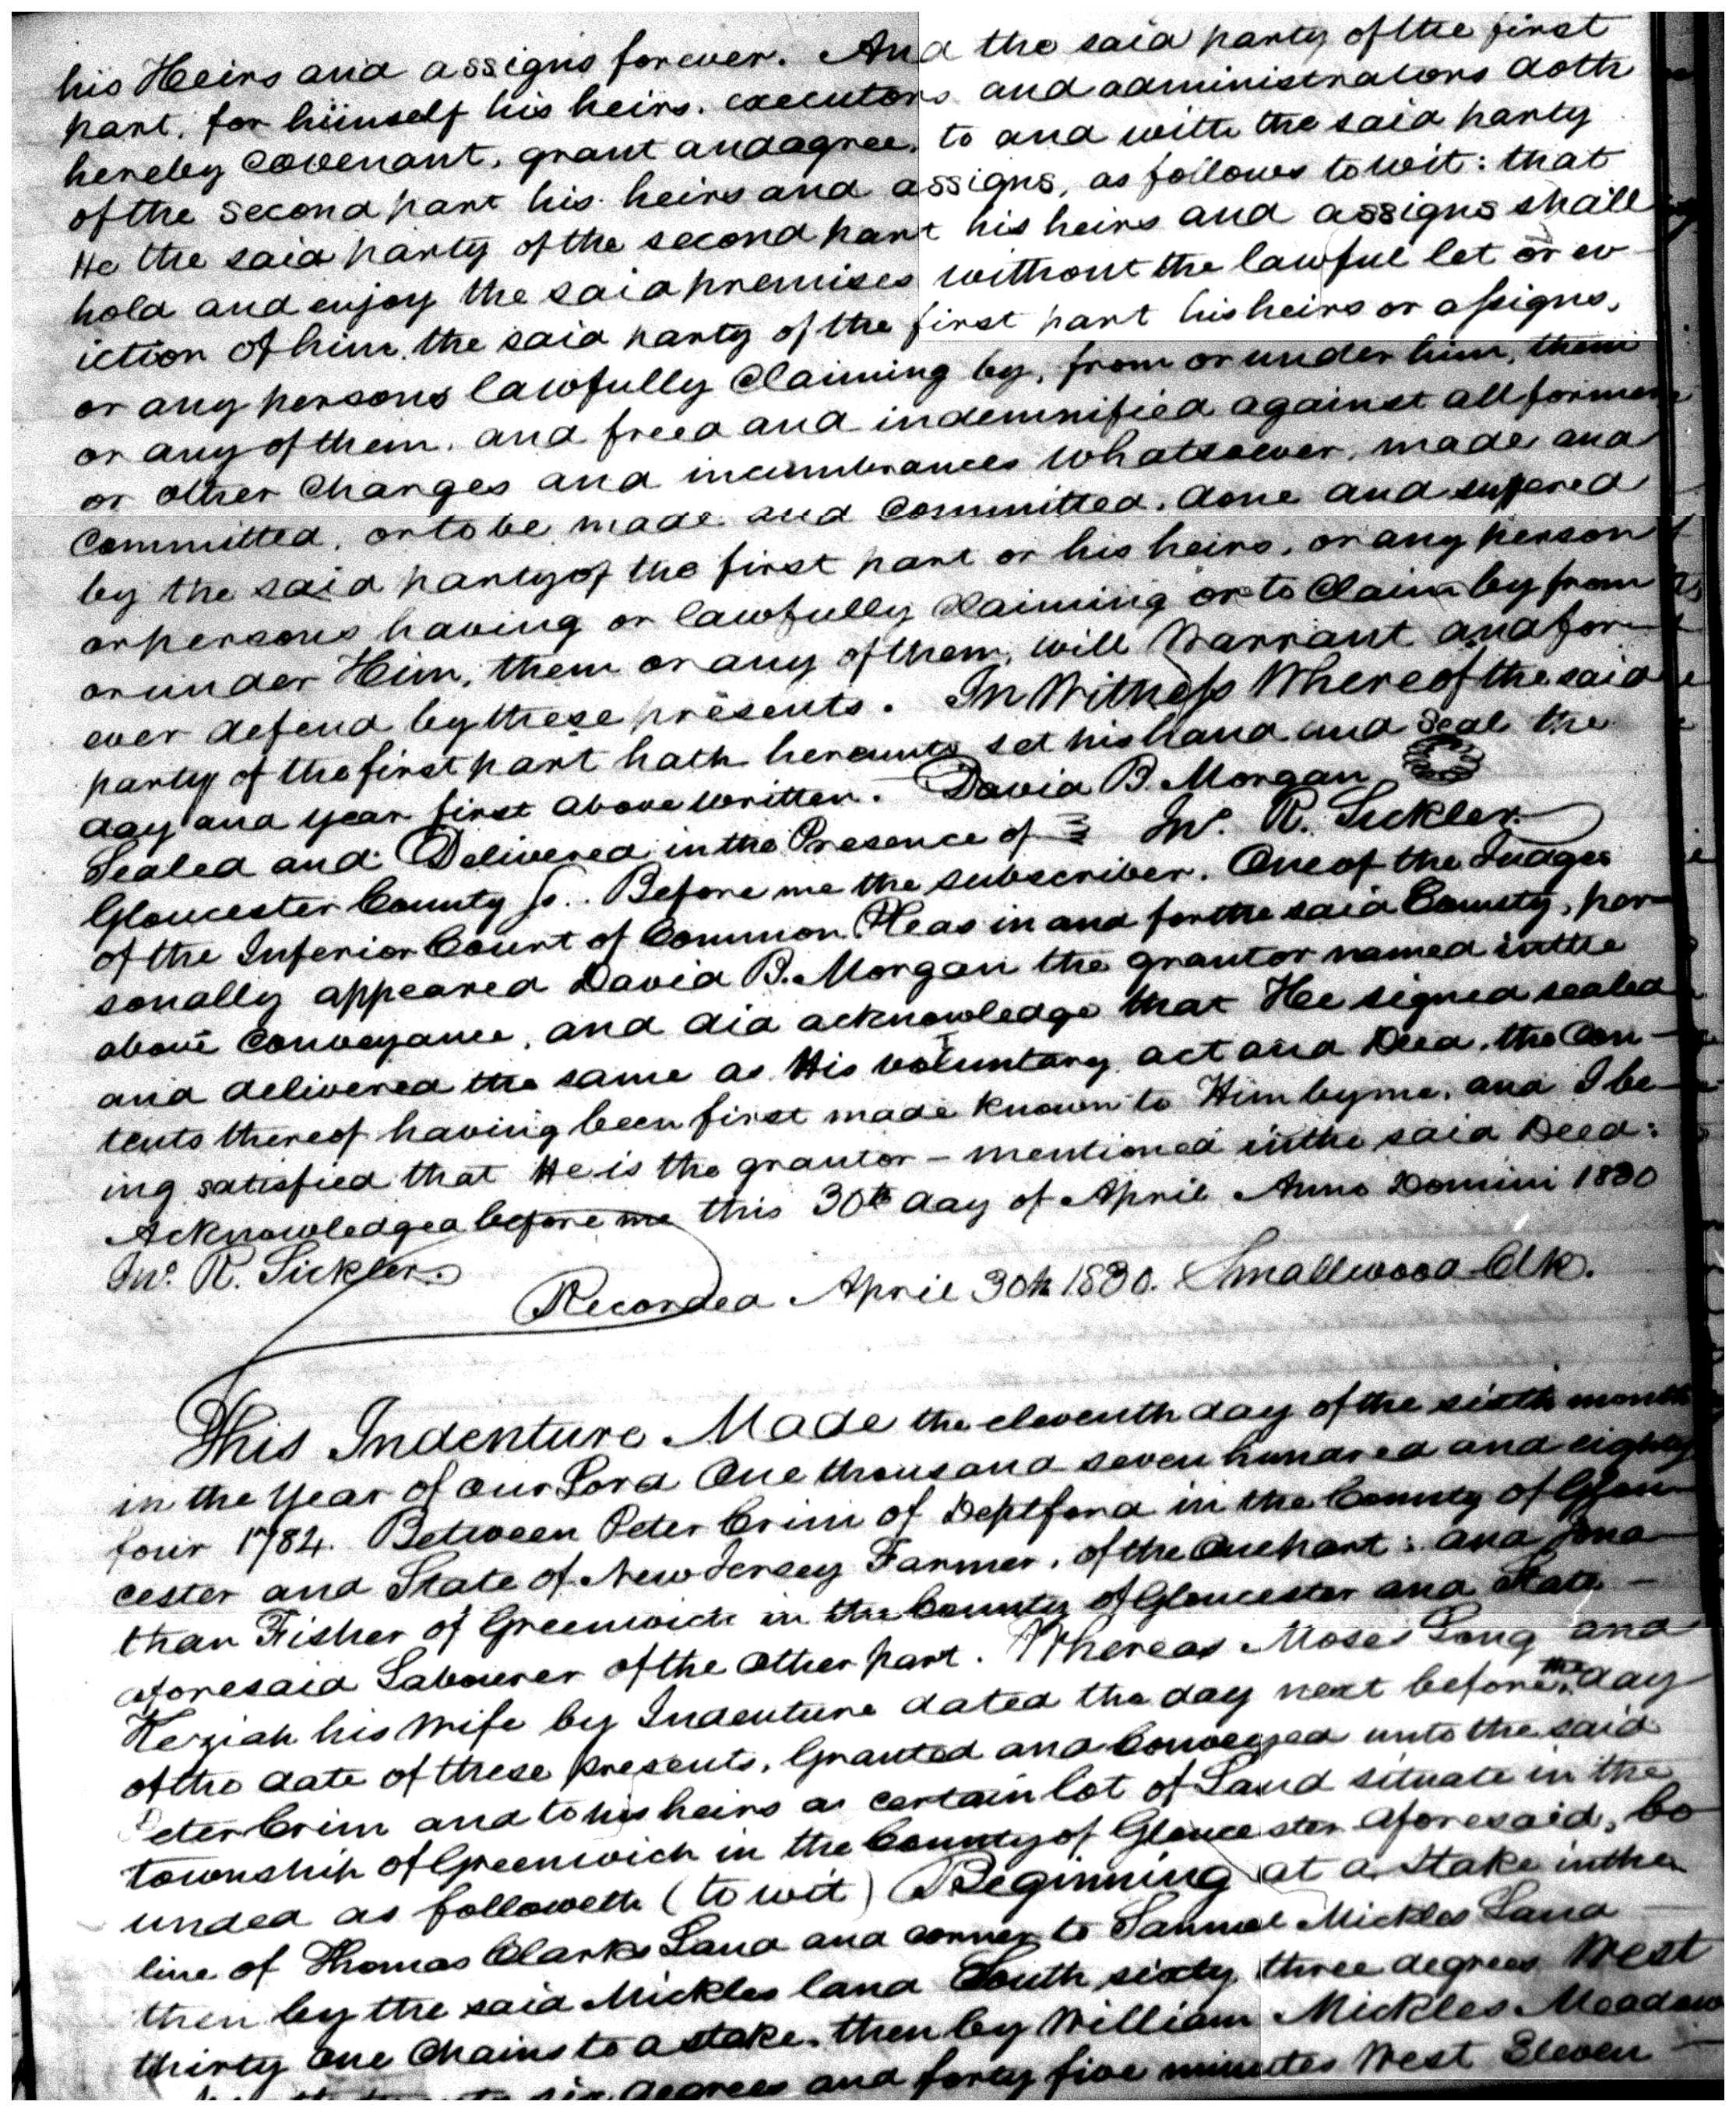 his Heirs and assigns forever. And the said party of the first
part, for himself his heirs, executors and administrators doth
hereby covenant, grant and agree, to and with the said party
of the second part his heirs and assigns, as follows to wit: that
He the said party of the second part his heirs and assigns shall
hold and enjoy the said premises without the lawful let or ev
iction of him, the said party of the first part his heirs or assigns,
or any persons lawfully Claiming by, from or under him, them
or any of them, and freed and indemnified against all former
or other Charges and incumbrances whatsoever, made and
Committed, or to be made and Committed, done and suffered
by the said party of the first part or his heirs, or any person
or persons having or lawfully claiming or to Claim by from
or under Him, them or any of them, will Warrant and for-
ever defend by these presents. In Witness Whereof the said
party of the first part hath hereunto set his hand and Seal the
day and year first above written. David B. Morgan
Sealed and Delivered in the Presence of Jno. R. Sickler.
Gloucester County Ss. Before me the subscriber, One of the Judges
of the Inferior Court of Common Pleas in and for the said County, per-
sonally appeared David B. Morgan the grantor named in the
above Conveyance, and did acknowledge that He signed sealed
and delivered the same as His voluntary act and Deed, the Con-
tents thereof having been first made known to Him by me, and I be-
ing satisfied that He is the grantor - mentioned in the said Deed:
Acknowledged before me this 30th day of April Anno Domini 1830
Jno. R. Sickler.
Recorded April 30th 1830. Smallwood Clk.
This Indenture Made the eleventh day of the sixth month
in the Year of our Lord One thousand seven hundred and eighty
four 1784. Between Peter Crim of Deptford in the County of Glou-
cester and State of New Jersey Farmer, of the One part: and Jona-
than Fisher of Greenwich in the County of Gloucester and State -
aforesaid Labourer of the other part. Whereas Moses Long and
Keziah his Wife by Indenture dated the day next before the day
of the date of these presents, Granted and Conveyed unto the said
Peter Crim and to his heirs a certain lot of Land situate in the
township of Greenwich in the County of Gloucester aforesaid, bo-
unded as followeth (to wit) Beginning at a Stake in the
line of Thomas Clarks Land and corner to Samuel Mickles Land
then by the said Mickles land South sixty three degrees West
thirty One Chains to a stake, then by William Mickles Meadow
six degrees and forty five minutes West Eleven